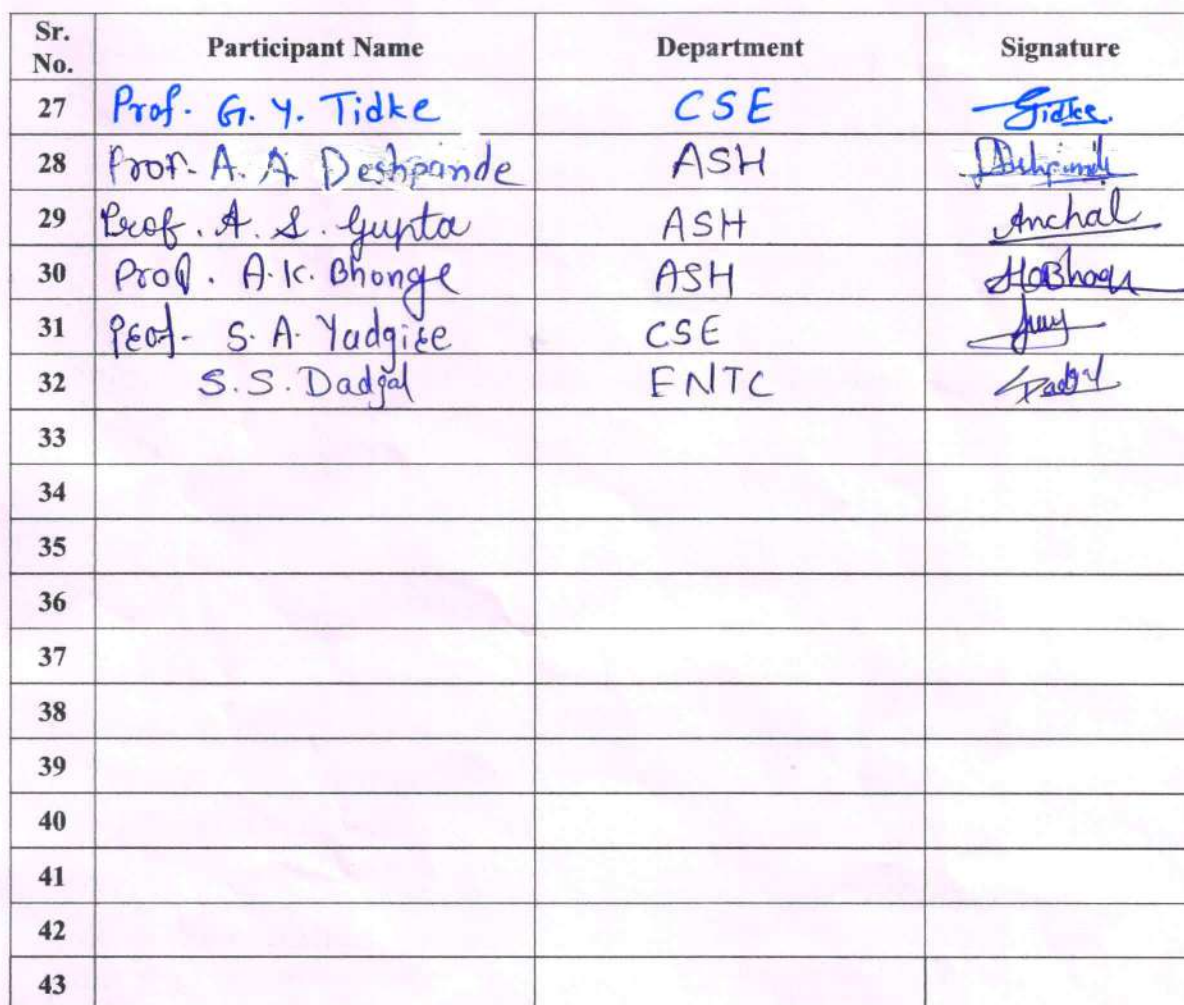 Sr. No. Participant Name Department Signature
27 Prof. G. Y. Tidke CSE Tidke.
28 Prof. A. A Deshpande ASH Deshpande
29 Prof. A. S. Gupta ASH Anchal
30 Prof. A. K. Bhonge ASH
31 Prof. S. A. Yadgire CSE
32 S. S. Dadgal ENTC Dadgal
33
34
35
36
37
38
39
40
41
42
43